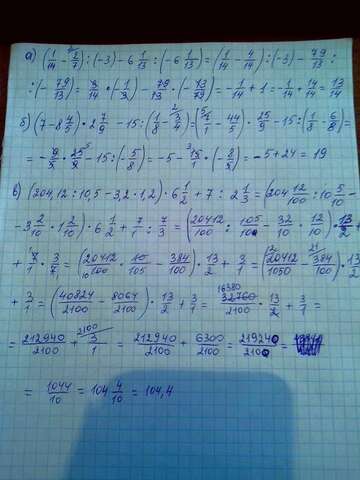 а) (1/14 - 2/7) : (-3) - 6 1/13 : (-6 1/13) = (1/14 - 4/14) : (-3) - 79/13 :
: (-79/13) = 3/14 · (1/3) - 79/13 · (-13/79) = -1/14 + 1 = -1/14 + 14/14 = 13/14
б) (7 - 8 4/5) · 2 7/9 - 15 : (1/8 - 3/4) = (5 7/1 - 44/5) · 25/9 - 15 : (1/8 - 6/8) =
= - 9/5 · 25/9 - 15 : (-5/8) = -5 - 15/1 · (-8/5) = -5 + 24 = 19
в) (204,12 : 10,5 - 3,2 · 1,2) · 6 1/2 + 7 : 2 1/3 = (204 12/100 : 10 5/10 -
- 3 2/10 · 1 2/10) · 6 1/2 + 7/1 : 7/3 = (20412/100 : 105/10 - 32/10 · 12/10) · 13/2
+ 7/1 · 3/7 = (20412/100 · 10/105 - 384/100) · 13/2 + 3/1 = (20412/1050 - 384/100) · 13/2
+ 3/1 = (40824/2100 - 8064/2100) · 13/2 + 3/1 = 16380 32760/2100 · 13/2 + 3/1 =
= 212940/2100 + 2100 3/1 = 212940/2100 + 6300/2100 = 219240/2100 =
= 1044/10 = 104 4/10 = 104,4